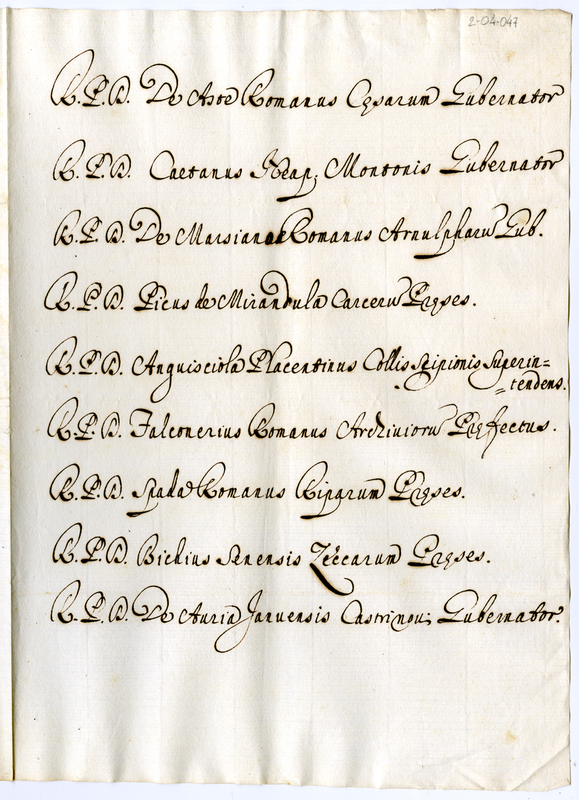 2-04-047
R. P. D. De Aste Romanus Aquarum Gubernator
R. P. D. Caetanus Neap. Montonis Gubernator
R. P. D. De Marsian Romanus Arnulpharū Gub.
R. P. D. Picus de Mirandula Carcerū Pręses.
R. P. D. Anguisciola Placentinus Collis Scipionis Superin=
=tendens.
R. P. D. Falconerius Romanus Archiviorū Pręfectus.
R. P. D. Spada Romanus Riparum Pręses.
R. P. D. Bichius Senensis Zeccarum Pręses.
R. P. D. De Auria Januensis Castrinovi Gubernator.